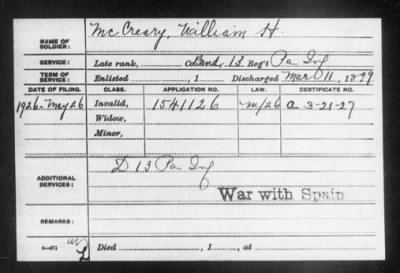 NAME OF SOLDIER: McCreary, William H.
SERVICE: Late rank, Band, 13 Reg't Pa Inf
TERM OF SERVICE: Enlisted , 1 Discharged Mar 11, 1899
DATE OF FILING. CLASS. APPLICATION NO. LAW. CERTIFICATE NO.
1926-May 26 Invalid, 1541126 m/26 a 3-21-27
Widow,
Minor,
ADDITIONAL SERVICES: D 13 Pa Inf
War with Spain
REMARKS:
Died , 1 , at